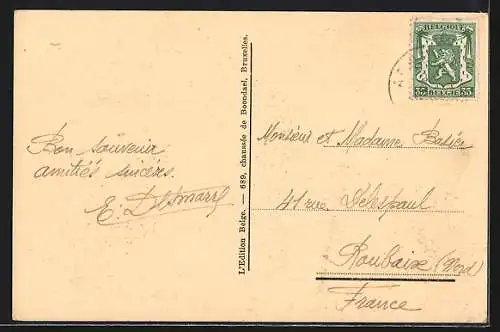 Bon souvenir
amitiés sincères.
E. Desmarey
L'Edition Belge. — 689, chaussée de Boondael, Bruxelles.
BELGIQUE
35 35
BELGIE
Monsieur et Madame
41 rue Delespaul
Roubaix (Nord)
France